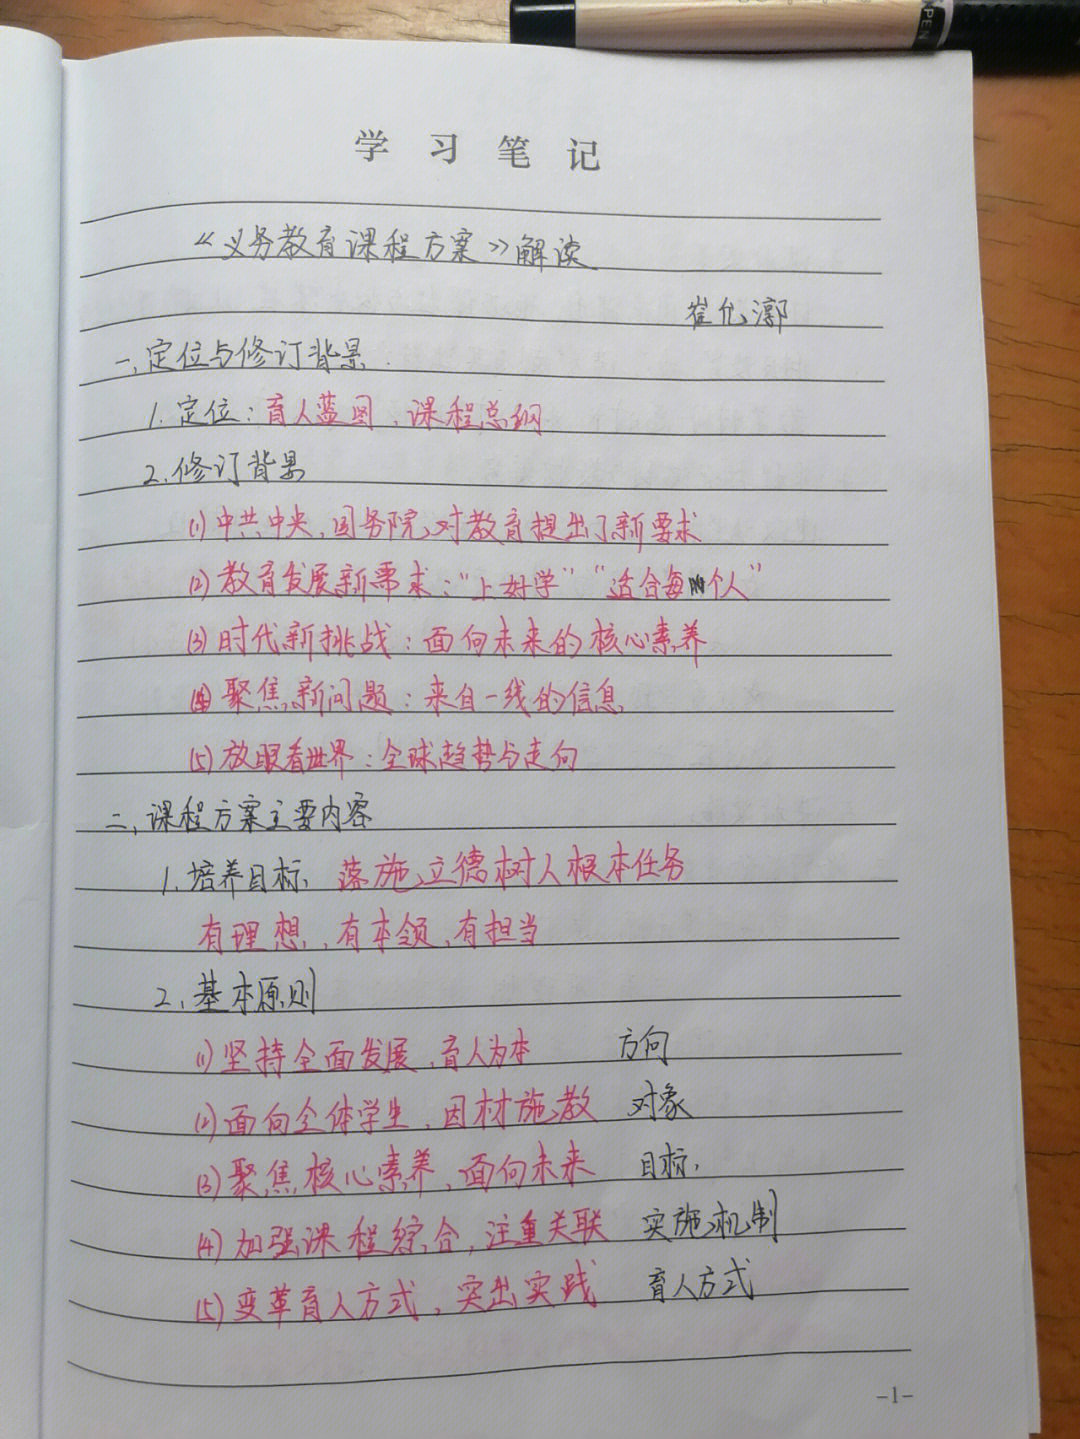 学习笔记
《义务教育课程方案》解读
崔允漷
一、定位与修订背景
1. 定位：育人蓝图、课程总纲
2. 修订背景
(1) 中共中央、国务院对教育提出了新要求
(2) 教育发展新需求：“上好学” “适合每个人”
(3) 时代新挑战：面向未来的核心素养
(4) 聚焦新问题：来自一线的信息
(5) 放眼看世界：全球趋势与走向
二、课程方案主要内容
1. 培养目标、落施立德树人根本任务
有理想、有本领、有担当
2、基本原则
(1) 坚持全面发展、育人为本 方向
(2) 面向全体学生、因材施教 对象
(3) 聚焦核心素养、面向未来 目标、
(4) 加强课程综合，注重关联 实施机制
(5) 变革育人方式，突出实践 育人方式
-1-